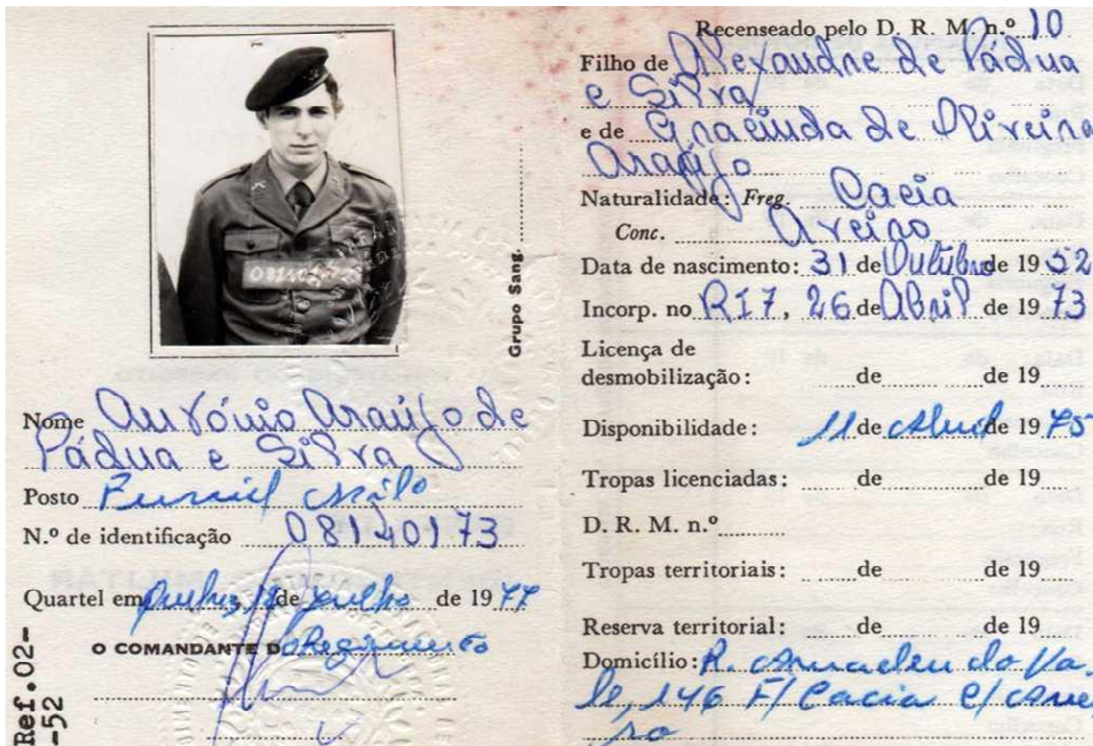 Grupo Sang.
Nome António Araújo de
Pádua e Silva
Posto Furriel Milº
N.º de identificação 08140173
Quartel em Queluz, 18 de Julho de 1977
O COMANDANTE DO Regimento
Ref.02-
-52
Recenseado pelo D. R. M. n.º 10
Filho de Alexandre de Pádua
e Silva
e de Gracinda de Oliveira
Araújo
Naturalidade: Freg. Cacia
Conc. Aveiro
Data de nascimento: 31 de Outubro de 1952
Incorp. no RI7, 26 de Abril de 1973
Licença de
desmobilização: de de 19
Disponibilidade: 11 de Abril de 1975
Tropas licenciadas: de de 19
D. R. M. n.º
Tropas territoriais: de de 19
Reserva territorial: de de 19
Domicílio: R. Amadeu do Va
le, 146 F/ Cacia C/ Avei
ro